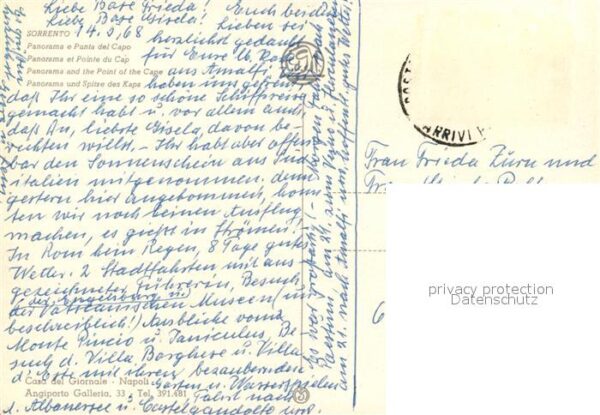 Liebe Base Frieda!
Liebe Base Gisela!
SORRENTO 14.9.68
Panorama e Punta del Capo
Panorama et Pointe du Cap
Panorama and the Point of the Cape
Panorama und Spitze des Kaps
Euch beiden
Lieben sei
herzlichst gedankt
für Eure lb. Kar
aus Amalfi.
haben uns gefreut,
daß Ihr eine so schöne Schiffsreise
gemacht habt u. vor allem auch,
daß Du, liebste Gisela, davon be-
richten willst. – Ihr habt aber offen-
bar den Sonnenschein aus Süd-
italien mitgenommen, denn
gestern hier angekommen, konn-
ten wir noch keinen Ausflug
machen, es gießt in Strömen.
In Rom kein Regen, 8 Tage gutes
Wetter. 2 Stadtfahrten mit aus-
gezeichneter Führerin, Besuch
der Engelsburg u.
der Vatikanischen Museen (un-
beschreiblich!) Ausblicke vom
Monte Pincio u. Janiculus, Be-
such d. Villa Borghese u. Villa
d'Este mit ihren bezaubernden
Gärten u. Wasserspielen
Fahrt nach
Albanersee u. Castelgandolfo usw.
Es war großartig! – Morgen
Paestum, am 20. zum
am 21. nach Amalfi u. hoffentl. gutes Wetter.
Casa del Giornale - Napoli
Angiporto Galleria, 33 - Tel. 391.481
ARRIVI
Frau Frieda Zürn und
privacy protection
Datenschutz